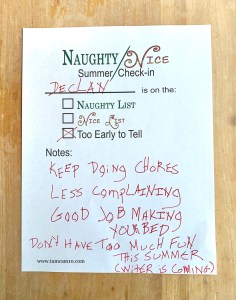 NAUGHTY/NICE
Summer Check-in
DECLAN is on the:
NAUGHTY LIST
NICE LIST
Too Early to Tell
Notes:
KEEP DOING CHORES
LESS COMPLAINING
GOOD JOB MAKING
YOUR BED
DON'T HAVE TOO MUCH FUN
THIS SUMMER
(WITER IS COMING)